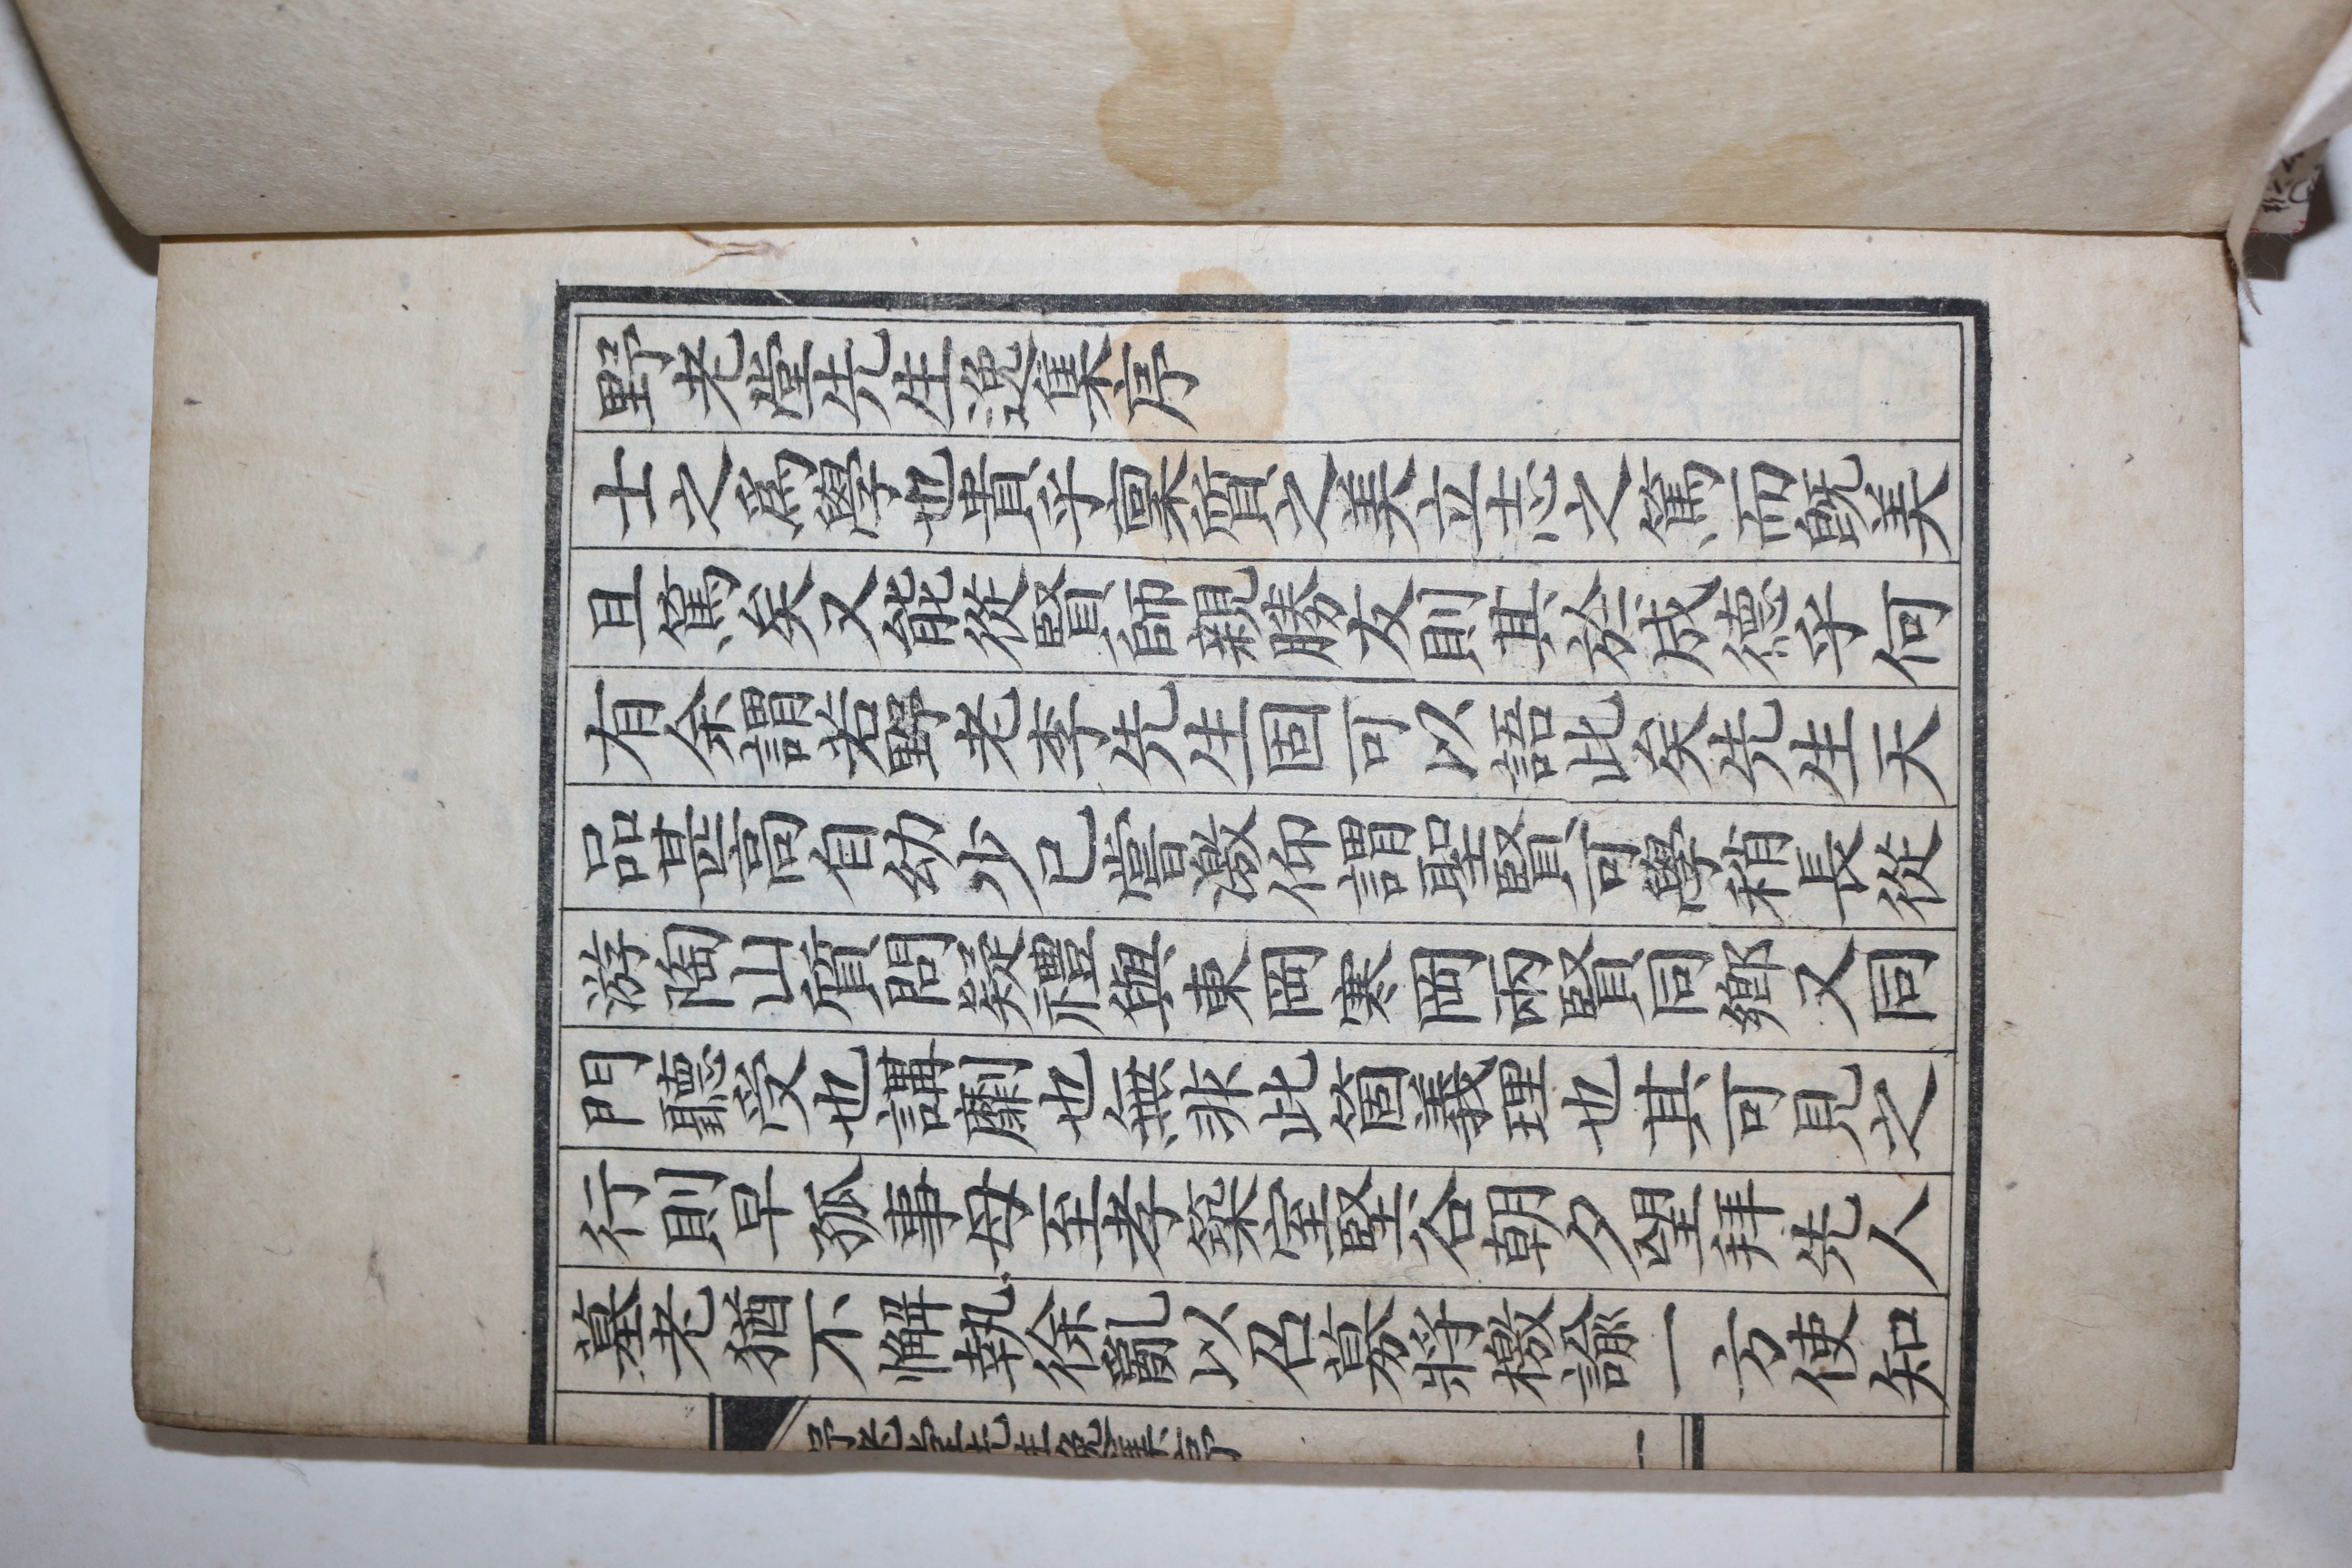 野老堂先生逸集序
士之爲學也貴乎稟質之美立志之篤而旣美
且篤矣又能從賢師親勝友則其於成德乎何
有余謂若野老李先生固可以語此矣先生天
品甚高自幼少已嘗激仰謂聖賢可學稍長從
游陶山質問疑禮與東岡寒岡兩賢同鄕又同
門聽受也講劘也無非此箇義理也其可見之
行則早孤事母至孝築室堅谷朝夕望拜先人
墓老猶不懈執徐亂以召募將檄諭一方使知
野老堂先生逸集序
一